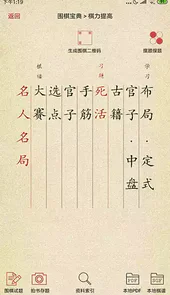 下午1:19
返回
围棋宝典 > 棋力提高
生成围棋二维码
布局.定式
官子.中盘
古籍
习题
死活
手筋
官子
选点
棋谱
大赛
名人名局
围棋试题
拍书存题
资料索引
本地PDF
本地棋谱